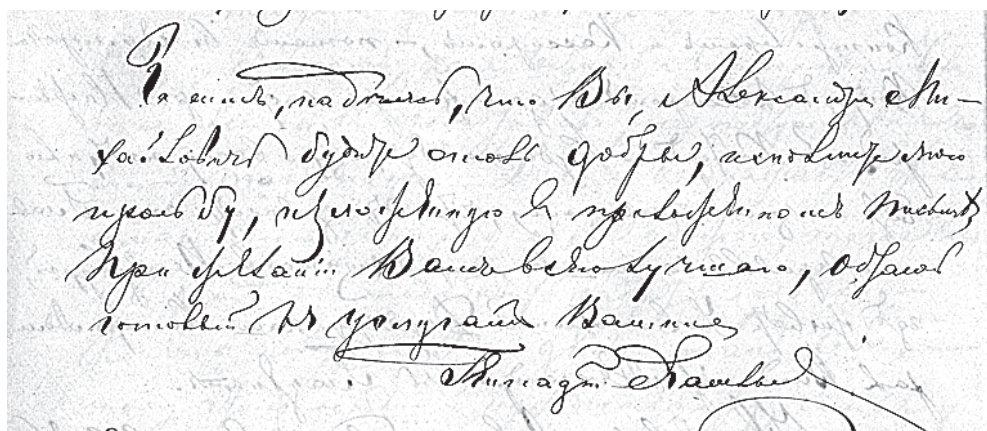 Засимъ, надѣясь, что Вы, Александръ Ми-
хайловичъ будете столь добры, исполните мою
просьбу, изложенную въ предложенномъ письмѣ,
При желаніи Вамъ всего лучшаго, остаюсь
готовый къ услугамъ Вашимъ